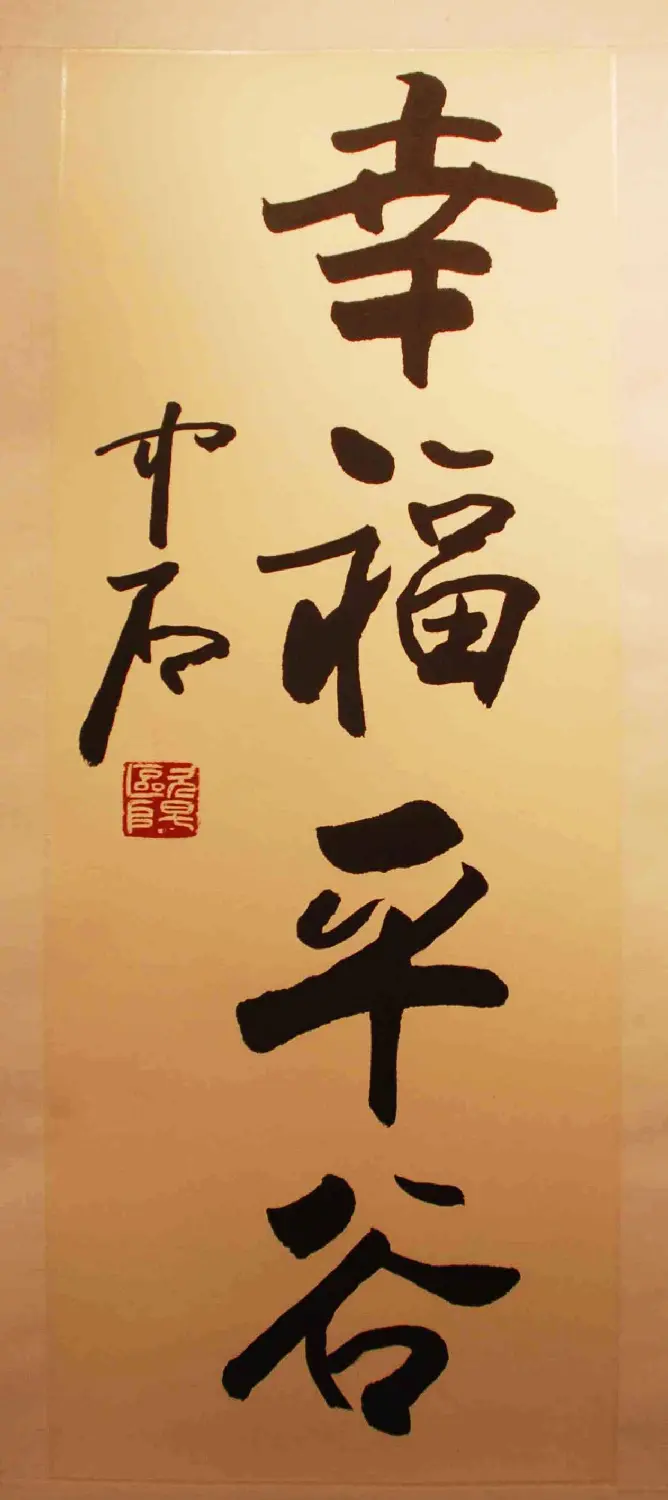 幸福平谷
中石